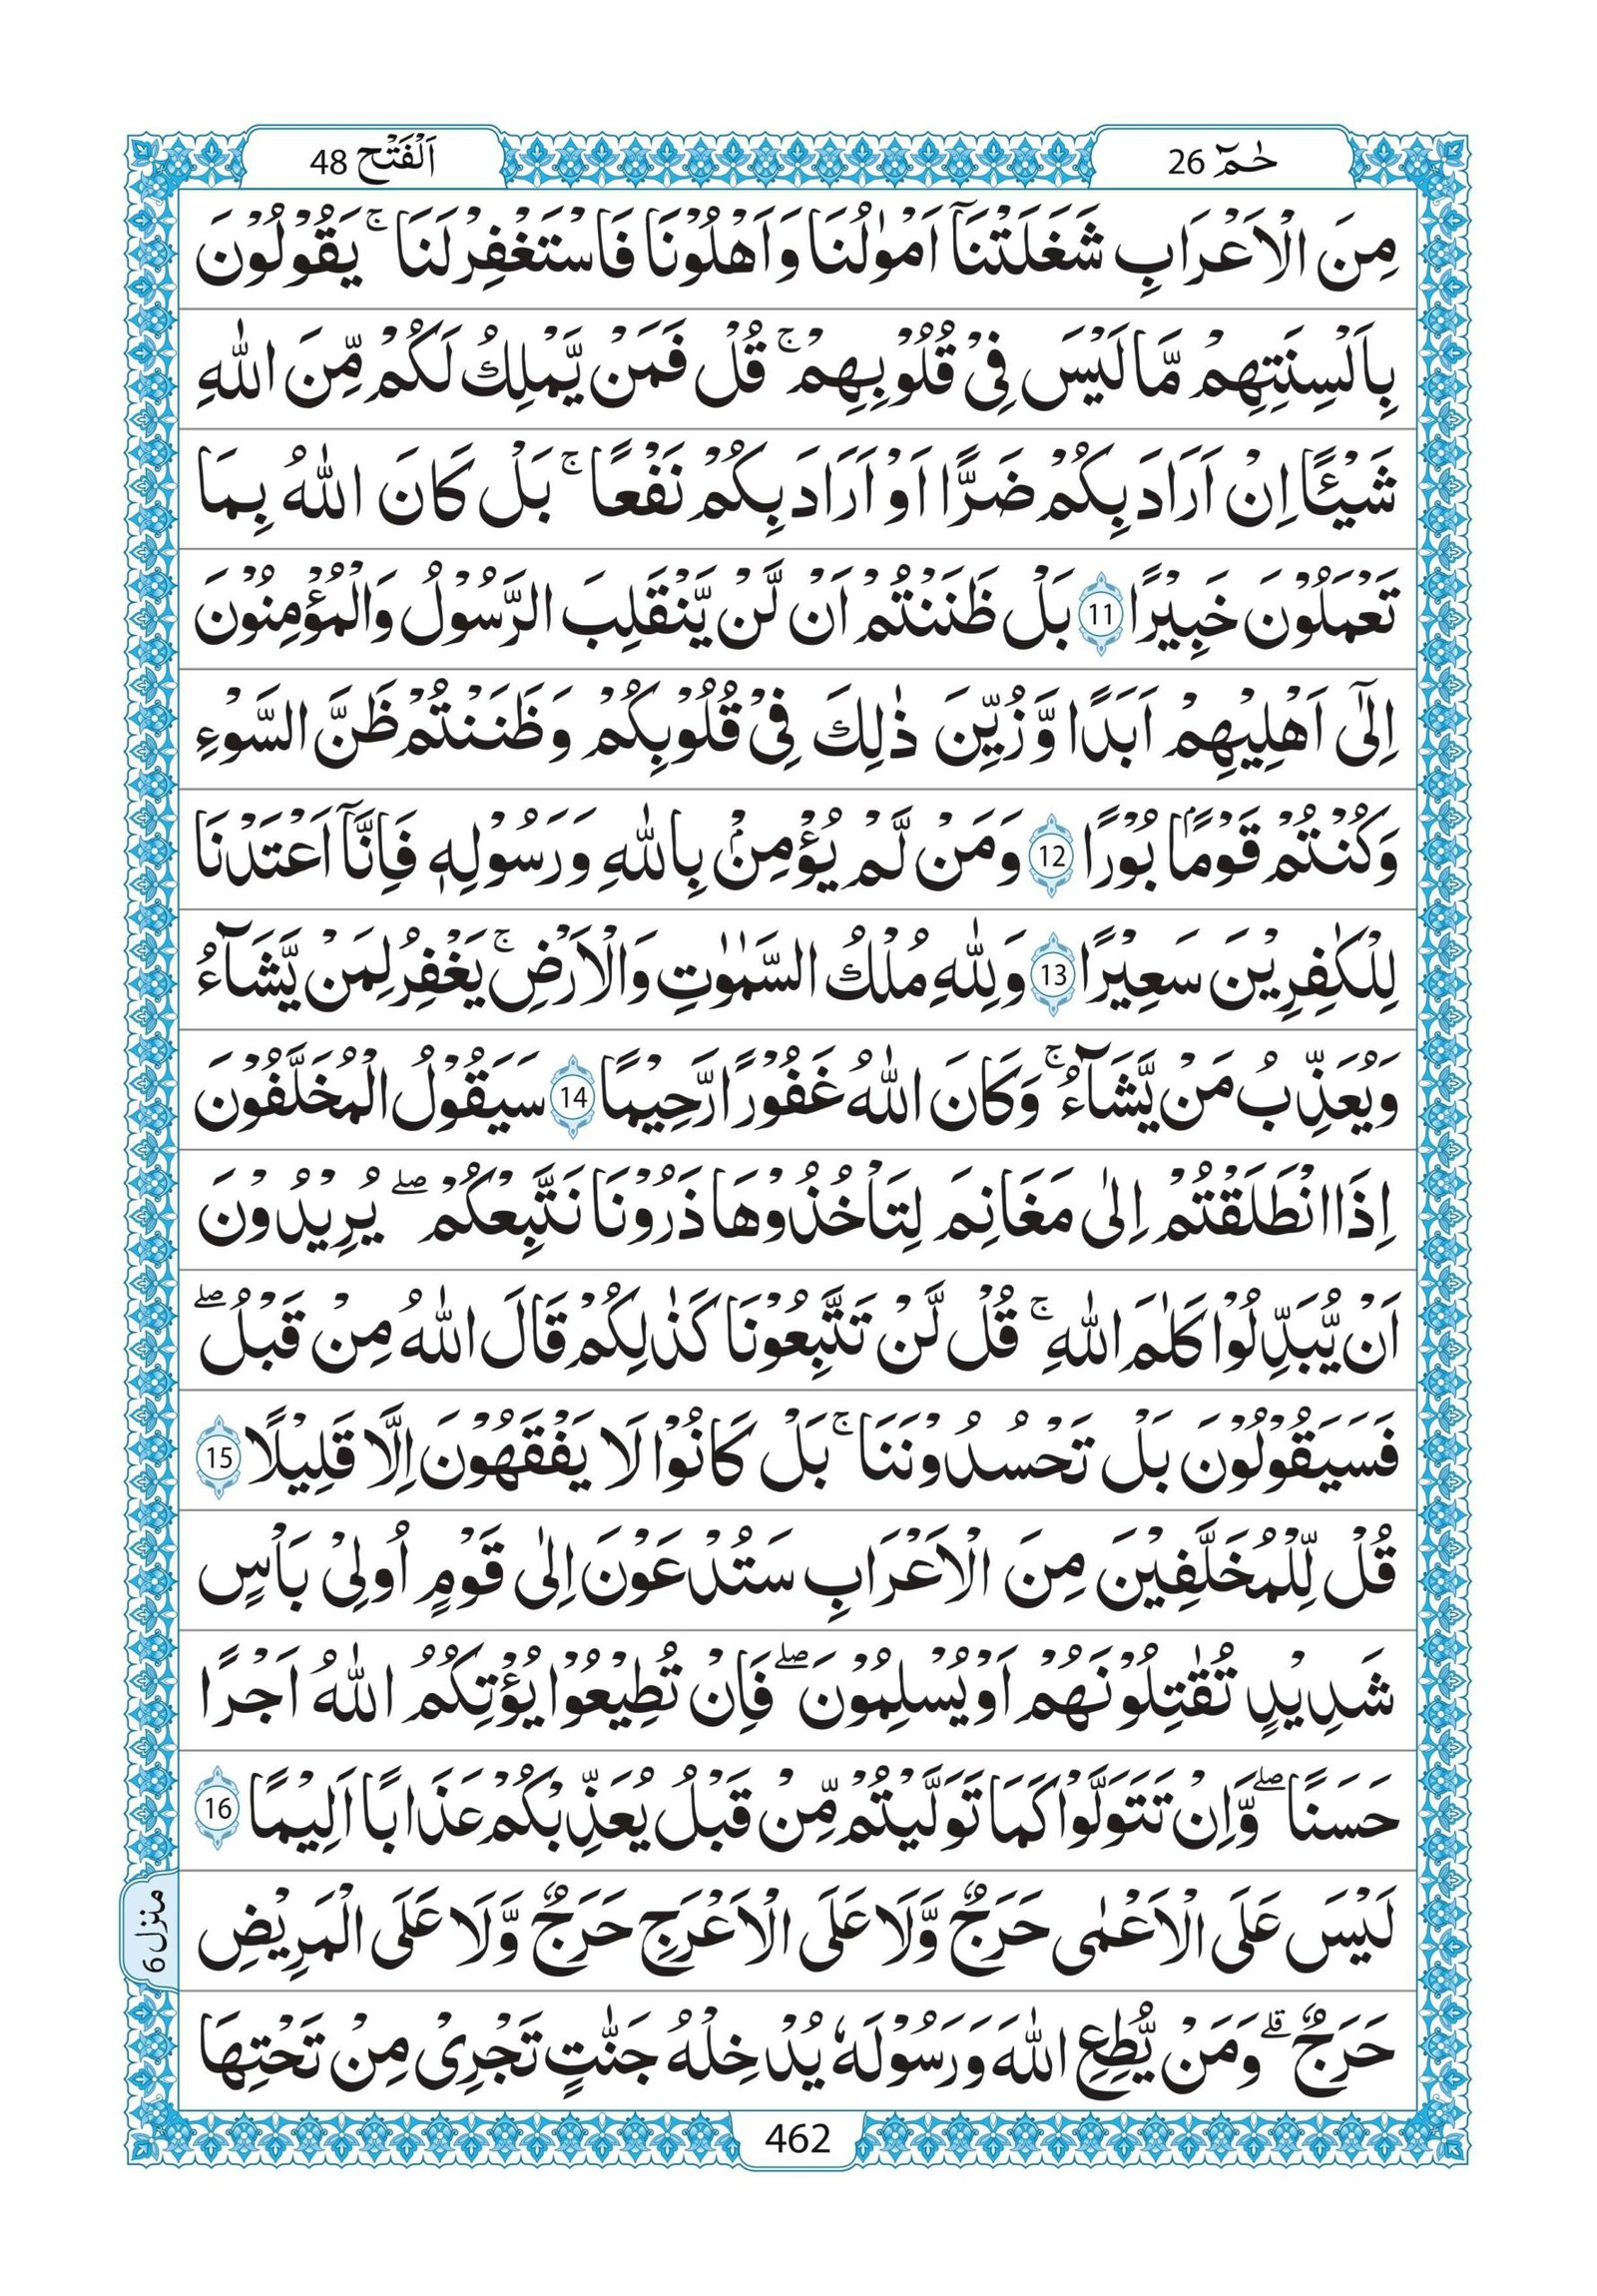 حٰمٓ 26
اَلْفَتْح 48
مِنَ الْاَعْرَابِ شَغَلَتْنَاۤ اَمْوٰلُنَا وَاَهْلُوْنَا فَاسْتَغْفِرْلَنَا ۚ يَقُوْلُوْنَ
بِاَلْسِنَتِهِمْ مَّا لَيْسَ فِيْ قُلُوْبِهِمْ ۚ قُلْ فَمَنْ يَّمْلِكُ لَكُمْ مِّنَ اللّٰهِ
شَيْـًٔا اِنْ اَرَادَ بِكُمْ ضَرًّا اَوْ اَرَادَ بِكُمْ نَفْعًا ۚ بَلْ كَانَ اللّٰهُ بِمَا
تَعْمَلُوْنَ خَبِيْرًا 11 بَلْ ظَنَنْتُمْ اَنْ لَّنْ يَّنْقَلِبَ الرَّسُوْلُ وَالْمُؤْمِنُوْنَ
اِلٰٓى اَهْلِيْهِمْ اَبَدًا وَّزُيِّنَ ذٰلِكَ فِيْ قُلُوْبِكُمْ وَظَنَنْتُمْ ظَنَّ السَّوْءِ
وَكُنْتُمْ قَوْمًاۢ بُوْرًا 12 وَمَنْ لَّمْ يُؤْمِنْۢ بِاللّٰهِ وَرَسُوْلِهٖ فَاِنَّاۤ اَعْتَدْنَا
لِلْكٰفِرِيْنَ سَعِيْرًا 13 وَلِلّٰهِ مُلْكُ السَّمٰوٰتِ وَالْاَرْضِ ۚ يَغْفِرُ لِمَنْ يَّشَآءُ
وَيُعَذِّبُ مَنْ يَّشَآءُ ۚ وَكَانَ اللّٰهُ غَفُوْرًا رَّحِيْمًا 14 سَيَقُوْلُ الْمُخَلَّفُوْنَ
اِذَا انْطَلَقْتُمْ اِلٰى مَغَانِمَ لِتَاْخُذُوْهَا ذَرُوْنَا نَتَّبِعْكُمْ ۖ يُرِيْدُوْنَ
اَنْ يُّبَدِّلُوْا كَلٰمَ اللّٰهِ ۚ قُلْ لَّنْ تَتَّبِعُوْنَا كَذٰلِكُمْ قَالَ اللّٰهُ مِنْ قَبْلُ ۖ
فَسَيَقُوْلُوْنَ بَلْ تَحْسُدُوْنَنَا ۚ بَلْ كَانُوْا لَا يَفْقَهُوْنَ اِلَّا قَلِيْلًا 15
قُلْ لِّلْمُخَلَّفِيْنَ مِنَ الْاَعْرَابِ سَتُدْعَوْنَ اِلٰى قَوْمٍ اُولِيْ بَاْسٍ
شَدِيْدٍ تُقٰتِلُوْنَهُمْ اَوْ يُسْلِمُوْنَ ۖ فَاِنْ تُطِيْعُوْا يُؤْتِكُمُ اللّٰهُ اَجْرًا
حَسَنًا ۖ وَّاِنْ تَتَوَلَّوْا كَمَا تَوَلَّيْتُمْ مِّنْ قَبْلُ يُعَذِّبْكُمْ عَذَابًا اَلِيْمًا 16
لَيْسَ عَلَى الْاَعْمٰى حَرَجٌ وَّلَا عَلَى الْاَعْرَجِ حَرَجٌ وَّلَا عَلَى الْمَرِيْضِ
حَرَجٌ ۗ وَمَنْ يُّطِعِ اللّٰهَ وَرَسُوْلَهٗ يُدْخِلْهُ جَنّٰتٍ تَجْرِيْ مِنْ تَحْتِهَا
منزل 6
462